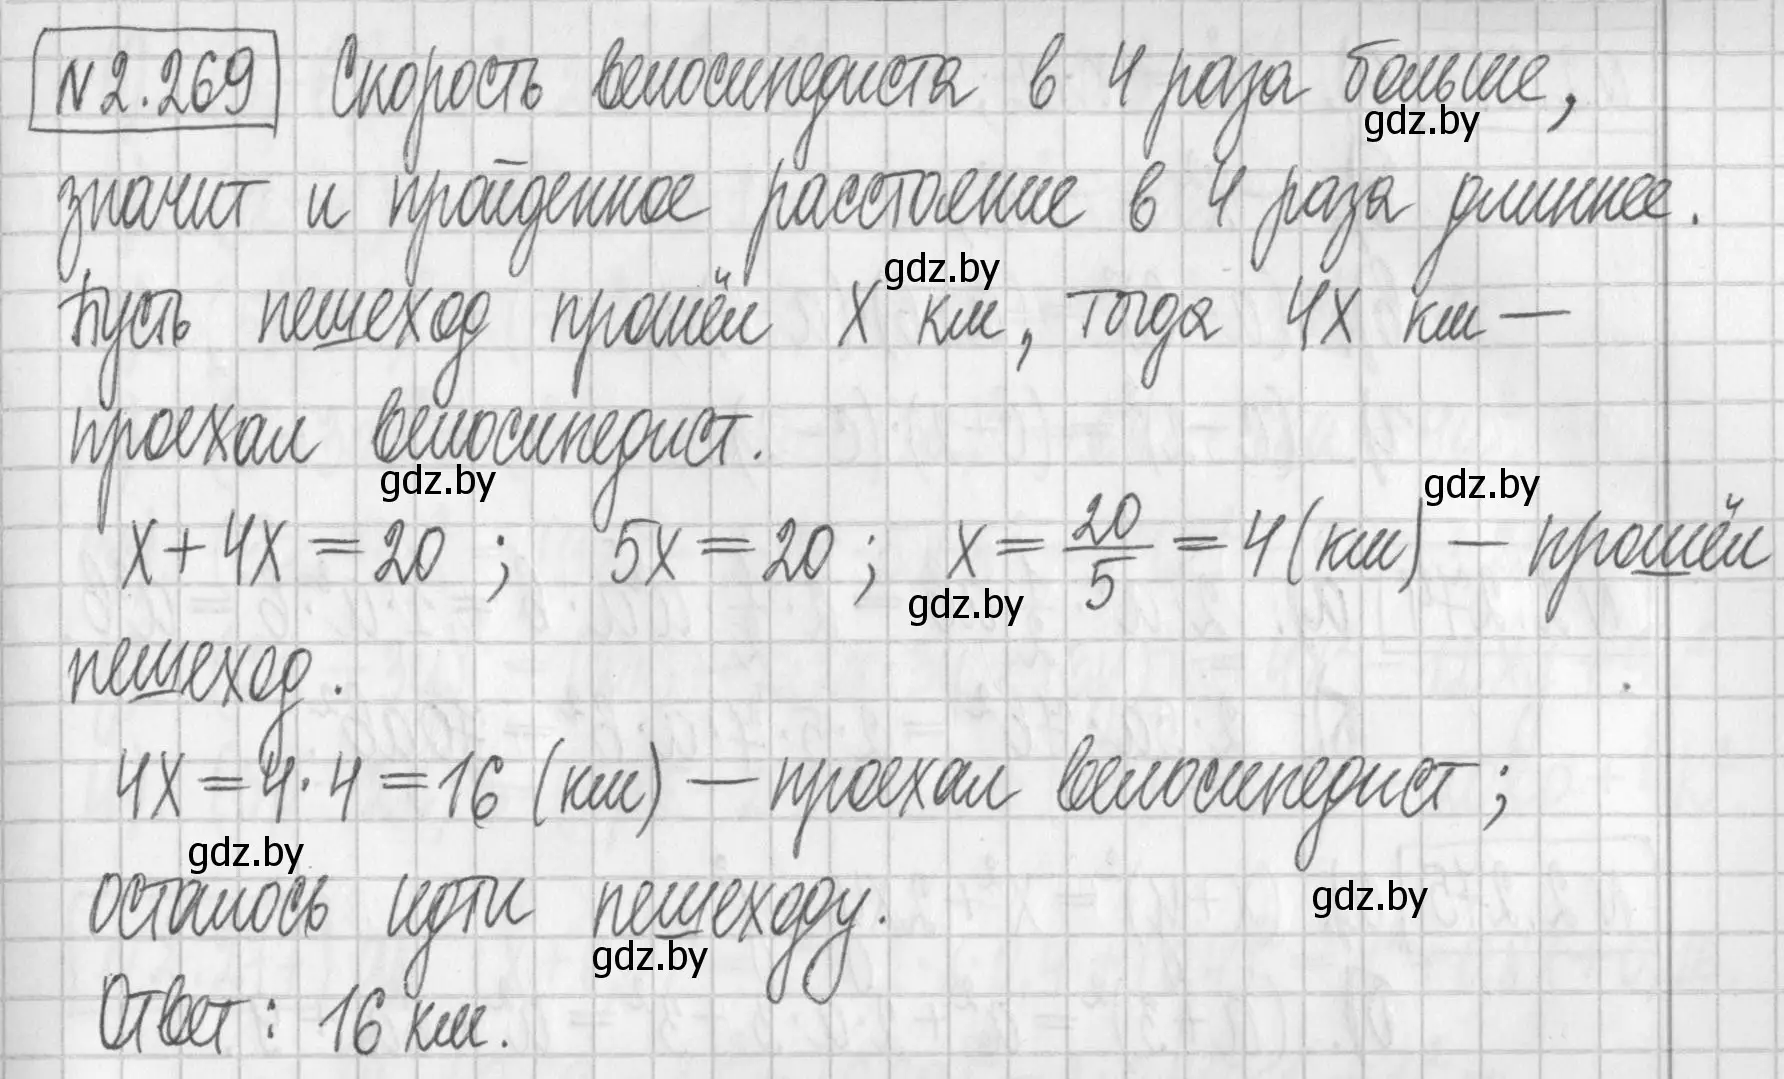 N2.269 Скорость велосипедиста в 4 раза больше,
gdz.by
значит и пройденное расстояние в 4 раза длиннее.
gdz.by
Пусть пешеход прошёл X км, тогда 4X км —
проехал велосипедист.
gdz.by
gdz.by
X+4X=20 ; 5X=20 ; X=20/5=4(км) — прошёл
gdz.by
пешеход.
4X=4·4=16 (км) — проехал велосипедист;
gdz.by
gdz.by
осталось идти пешеходу.
gdz.by
Ответ: 16 км.